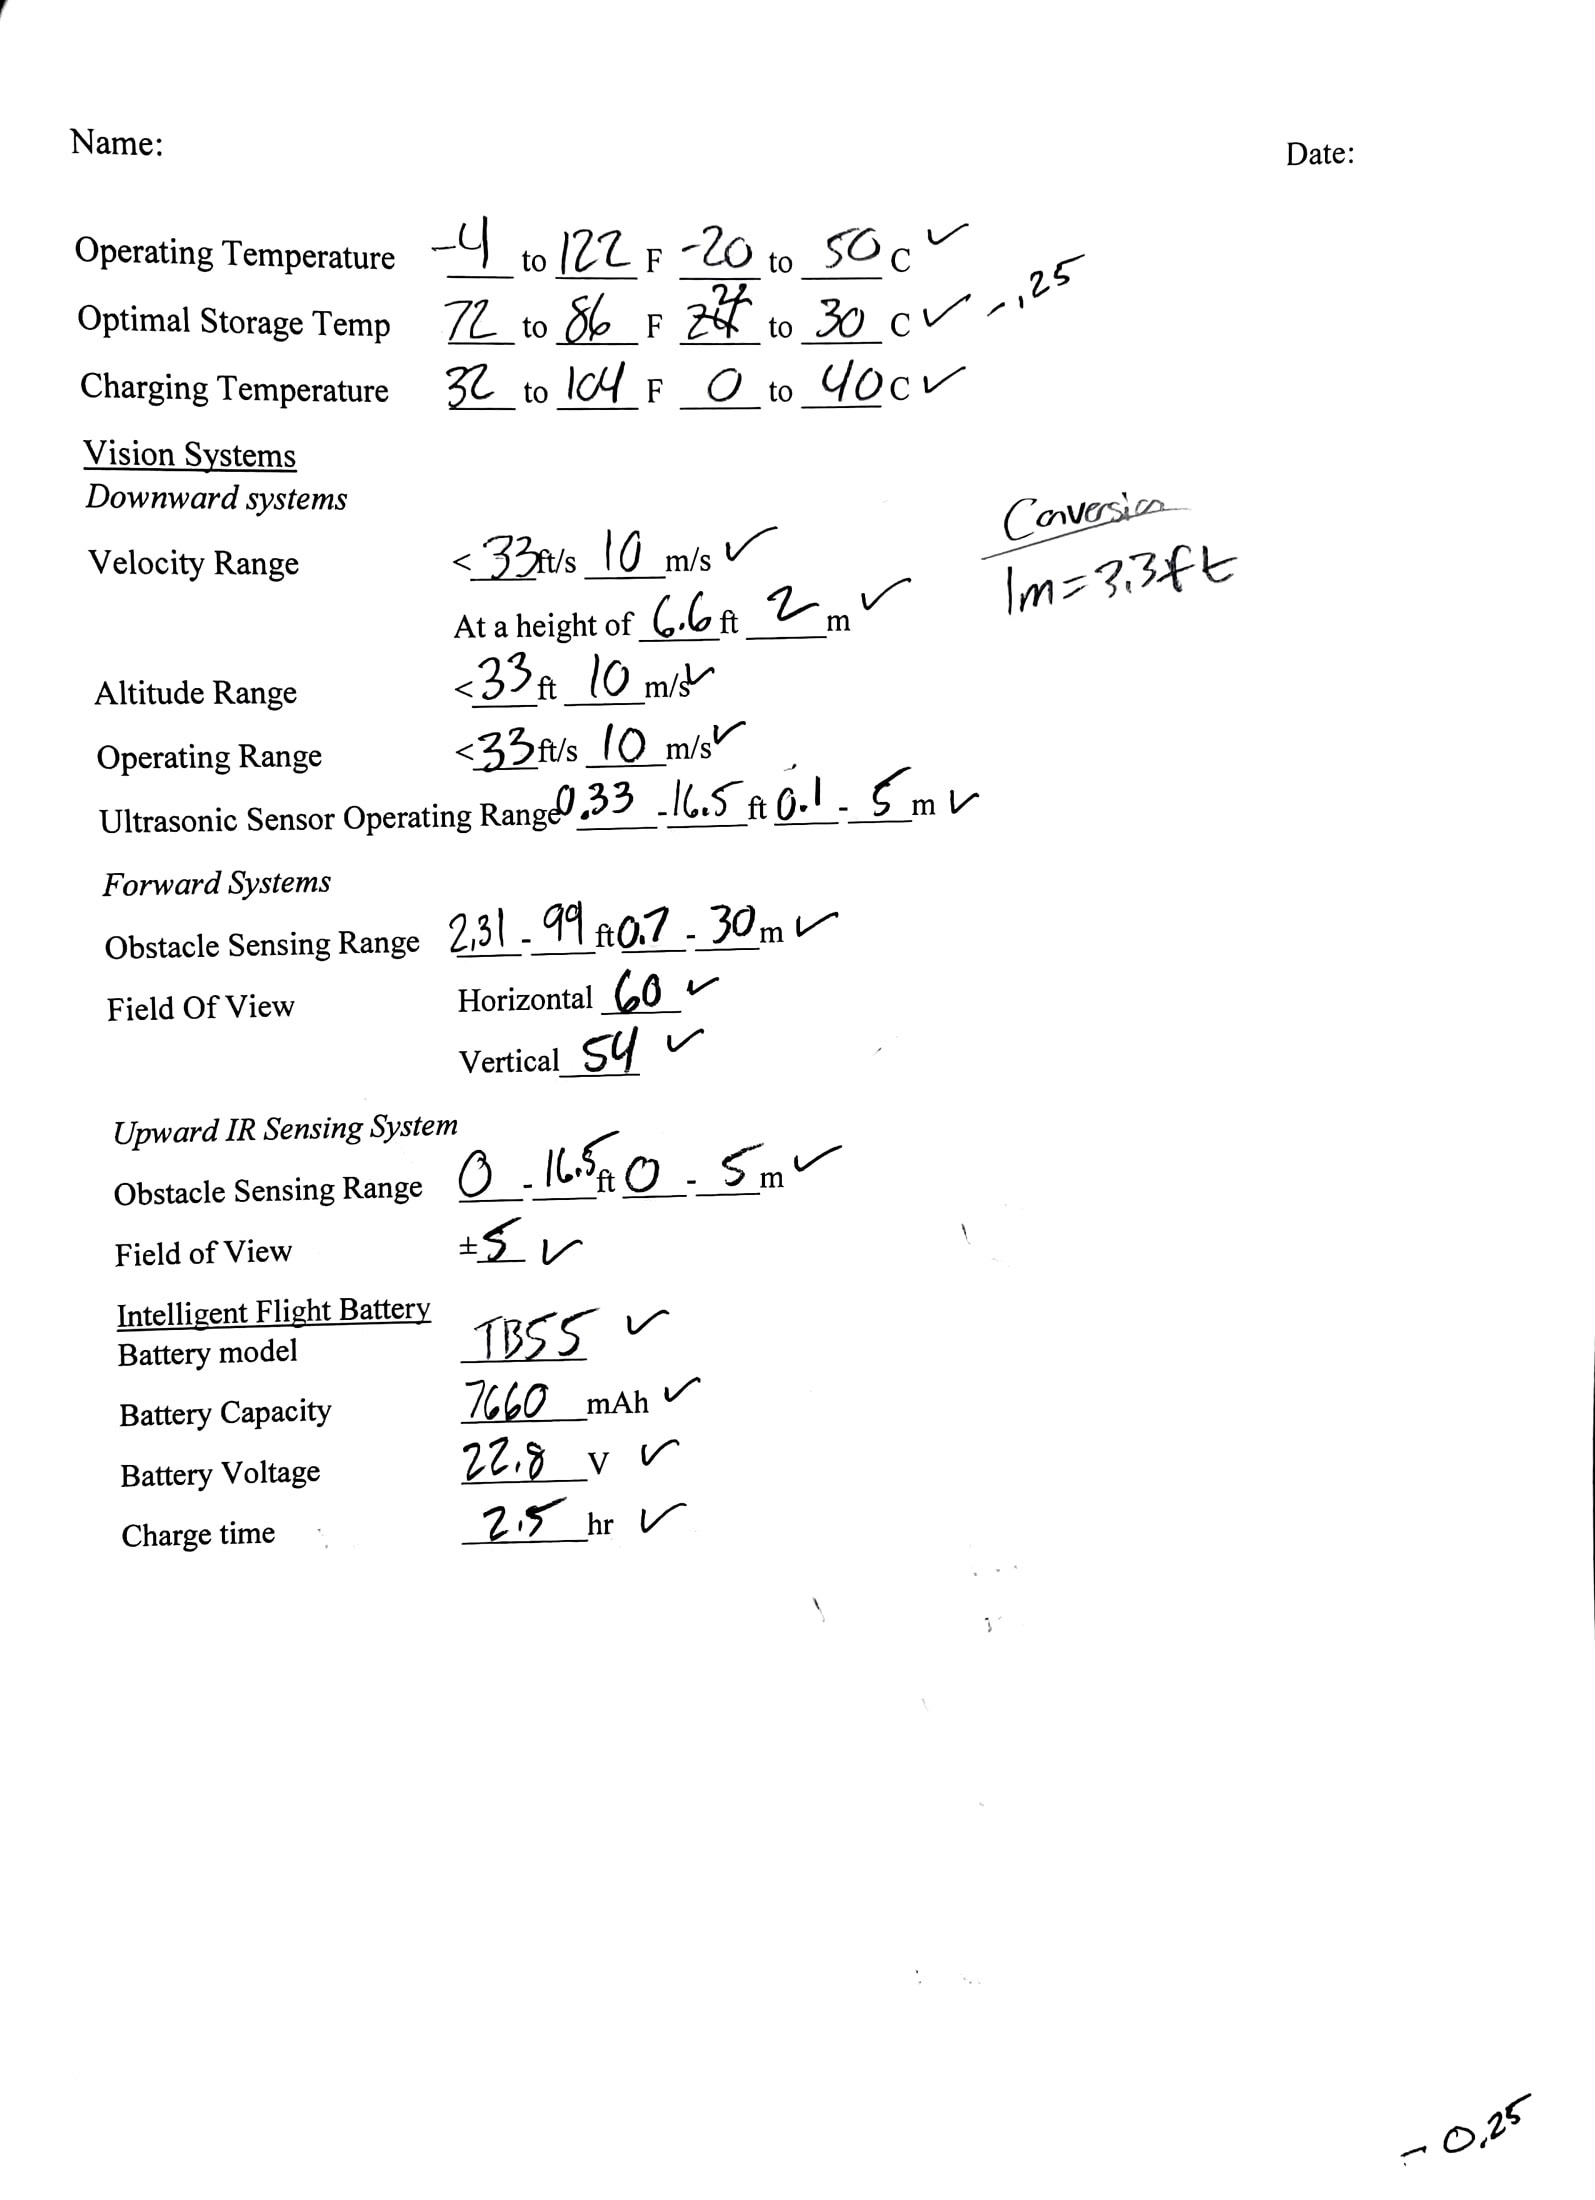 Name:
Date:
Operating Temperature -4 to 122 F -20 to 50 C ✓
Optimal Storage Temp 72 to 86 F to 30 C ✓ -.25
Charging Temperature 32 to 104 F 0 to 40 C ✓
Vision Systems
Downward systems
Conversion
Velocity Range < 33 ft/s 10 m/s ✓
1m = 3.3ft
At a height of 6.6 ft 2 m ✓
Altitude Range < 33 ft 10 m/s ✓
Operating Range < 33 ft/s 10 m/s ✓
Ultrasonic Sensor Operating Range 0.33 - 16.5 ft 0.1 - 5 m ✓
Forward Systems
Obstacle Sensing Range 2.31 - 99 ft 0.7 - 30 m ✓
Field Of View Horizontal 60 ✓
Vertical 54 ✓
Upward IR Sensing System
Obstacle Sensing Range 0 - 16.5 ft 0 - 5 m ✓
Field of View ±5 ✓
Intelligent Flight Battery
Battery model TB55 ✓
Battery Capacity 7660 mAh ✓
Battery Voltage 22.8 V ✓
Charge time 2.5 hr ✓
-0.25